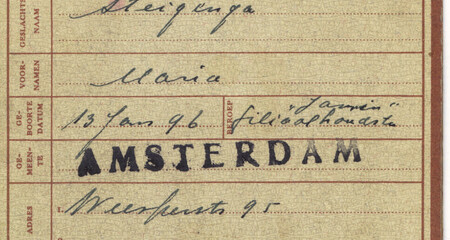 GESLACHTS
NAAM
Steigenga
VOOR-
NAMEN
Maria
GE-
BOORTE
DATUM
13 Jan 96
BEROEP
"Jamin"
filiaalhoudster
GE-
MEEN-
TE
AMSTERDAM
ADRES
1.
Weesperstr 95
2.